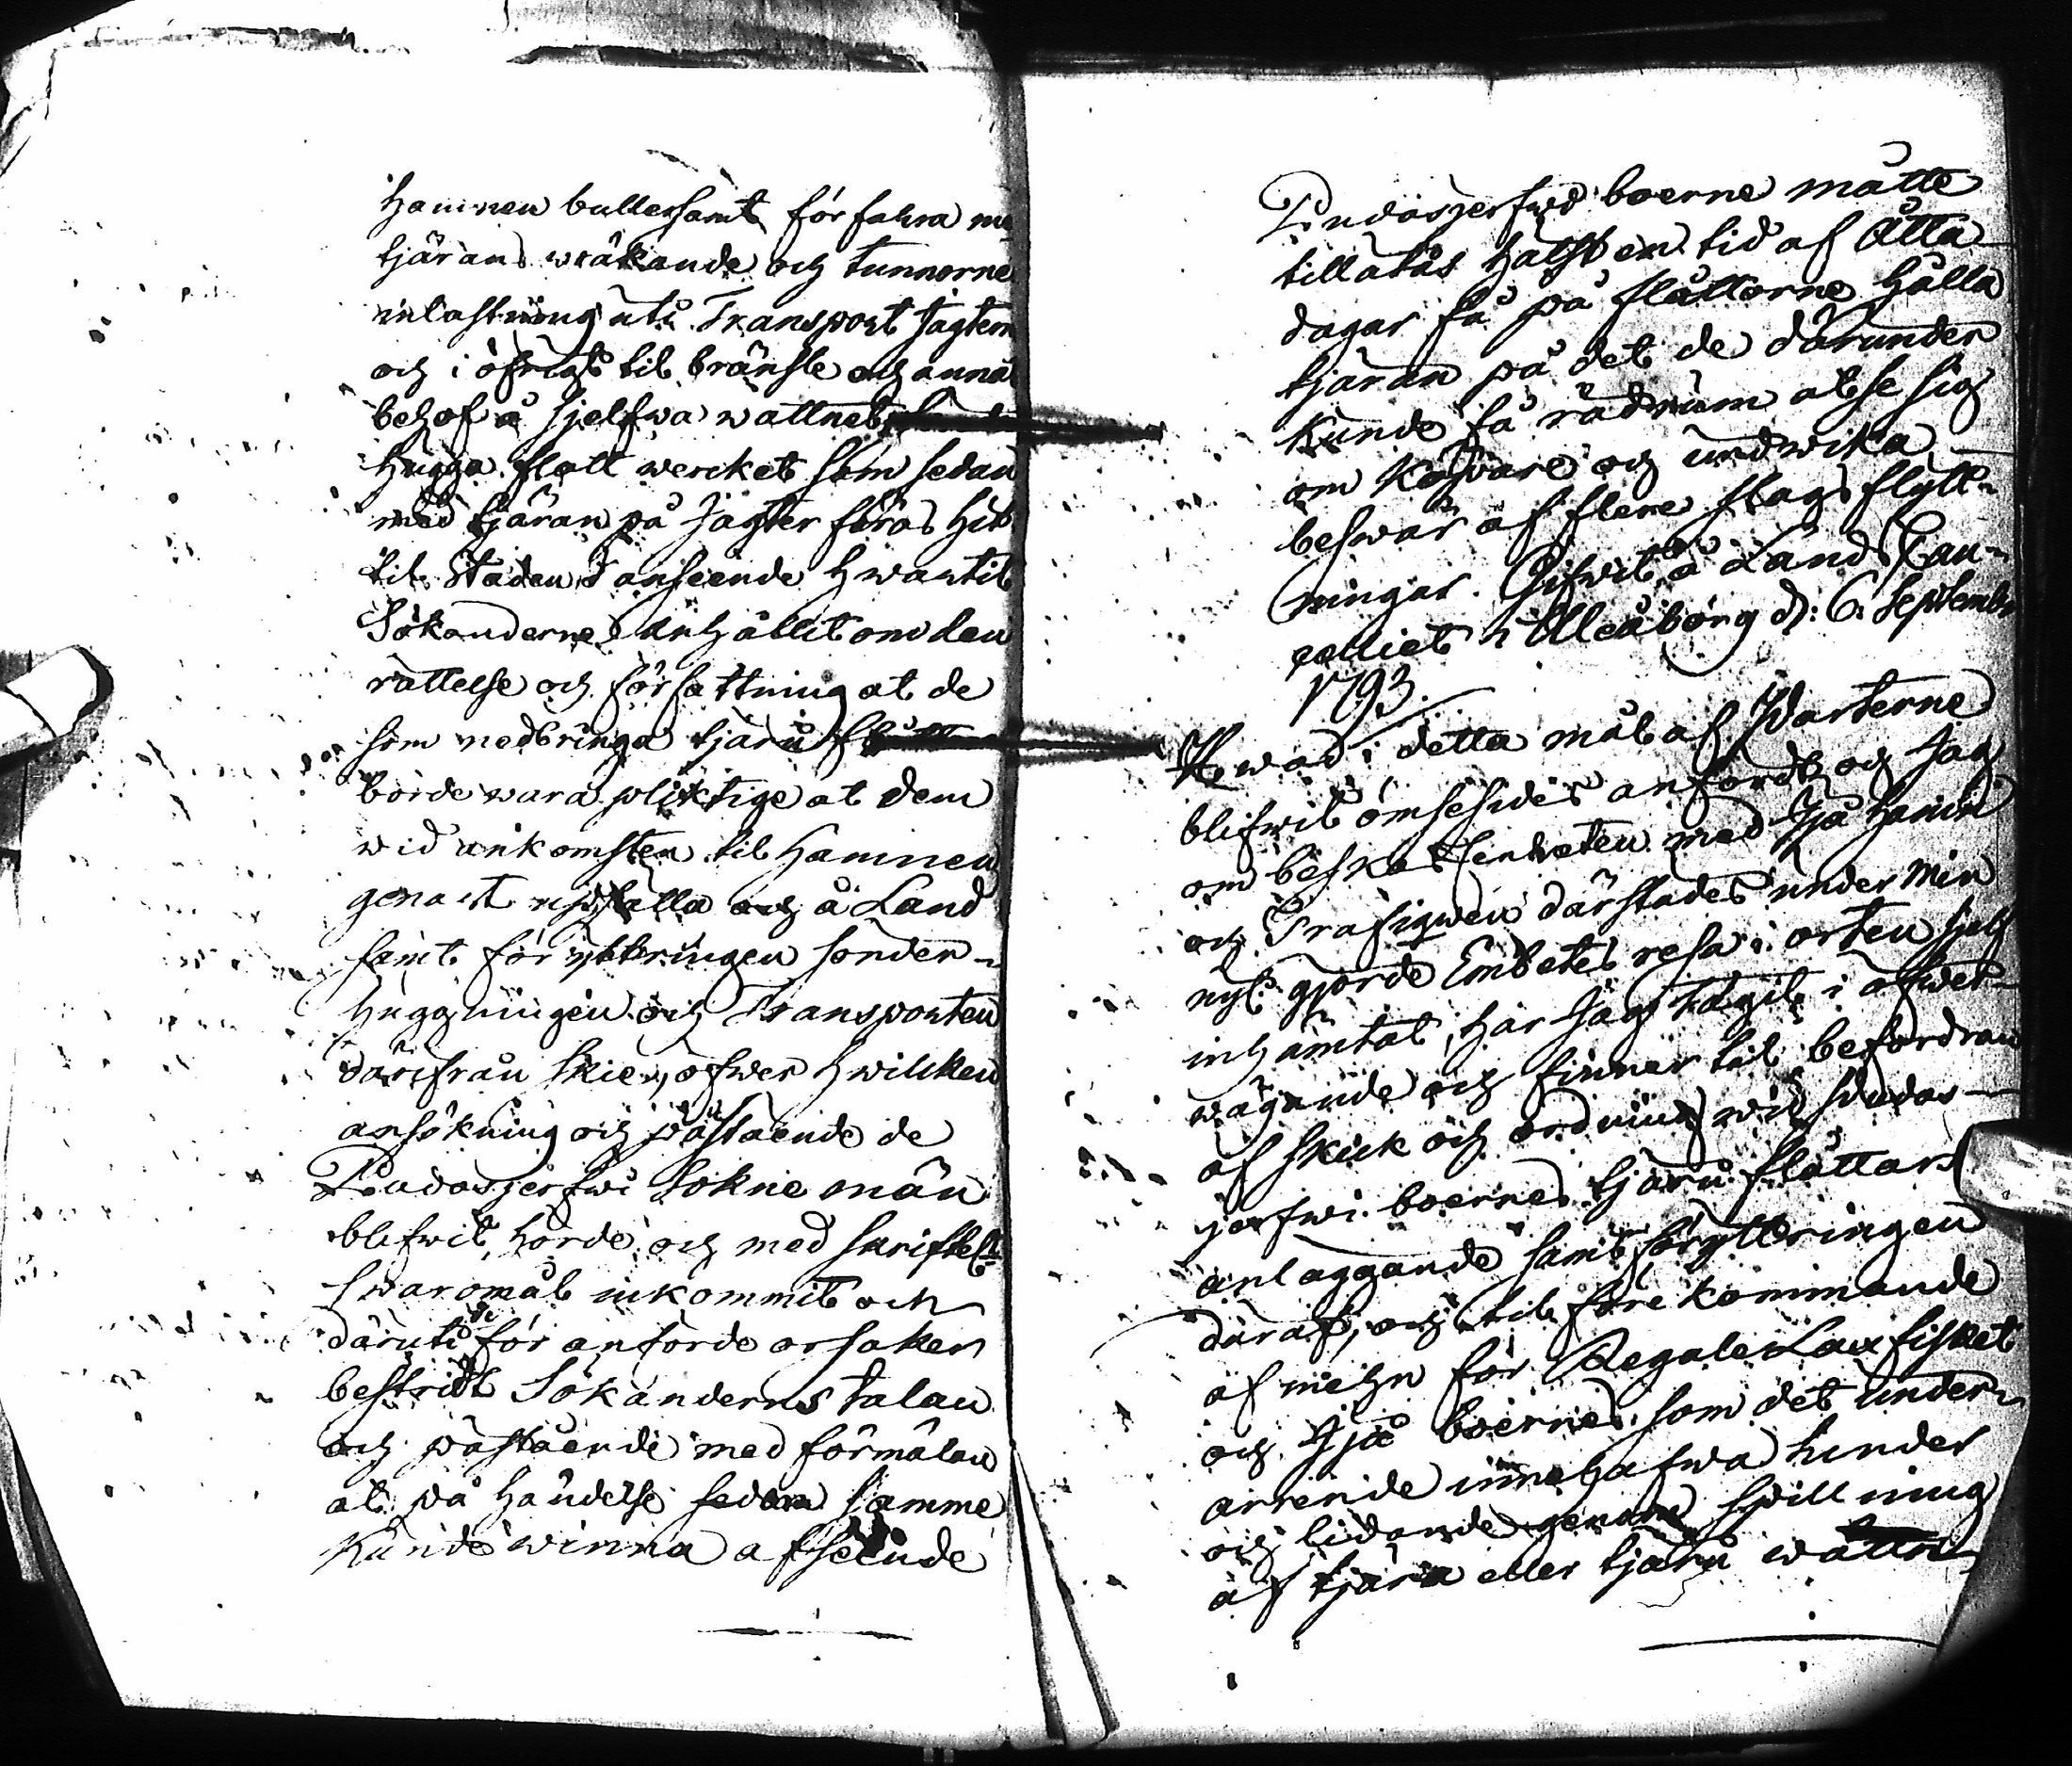 Hamnen bullersamt förfahra me
tjärans wräkande och tunnorne
inlastning uti Transport Jagtern
och i öfrigt til bränsle och annat
behof å sjelfwa wattnet
hugga flått wercket som sedan
med tjäran på Jagter föras hit
til Staden i anseende hwartil
Sökanderne anhållit om den
rättelse och författning at de
som nedbringa tjäru
borde wara pliktige at dem
wid ankomsten til Hamnen
genast och å Land
samt för yttringen sönder-
huggningen och Transporten
därifrån skie, öfwer hwilken
ansökning och påstående de
Pudasjerfwi Sokne män
blifwit hörde och med skriftel:t
swaromål inkommit och
däruti de för anförde orsaker
bestridt Sökanderns talan
och påstående med förmälan
at på händelse sedan samme
kunde winna afseende
Pudasjerfwi boerne måtte
tillåtas hälst en tid af Åtta
dagar få på flåttorne hålla
tjäran på det de därunder
kunde få rådrum at se sig
om köpare och undwika
beswär af flere slags flytt-
ningar. Gifwit å Lands Can-
celliet i Uleåborg d: 6. Septembr
1793.
Hwad i detta mål af Parterne
blifwit ömsesides anfördt och Jag
om beskaffenheten med Ijå Hamn
och Trafiquen därstädes under min
nyl: gjorde Embetes resa i orten sjelf
inhämtat, har Jag tagit i öfwer-
wägande och finner til befordran
af skick och ordning wid Pudas-
jerfwi boernes tjäru flåttars
anläggande samt föryttringen
däraf, och til förekommande
af mehn för Regale Lax fisket
och Ijå boernes som det under
arrende innehafwa hinder
och lidande genom spillning
af tjära eller tjäru wattn